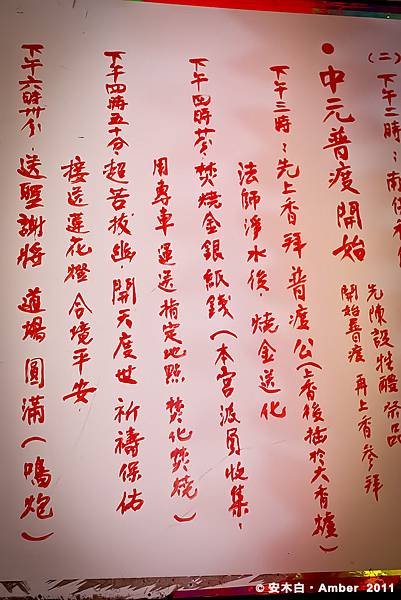 (二)下午二時：南
先陳設牲醴祭品
•中元普渡開始
開始普渡 再上香參拜
下午三時：先上香拜普渡公(上香後插於大香爐)
法師淨水後，燒金送化
下午四時廿分：焚燒金銀紙錢(本宮派員收集，
用專車運送指定地點焚化焚燒)
下午四時五十分：超苦拔幽，開天度世祈禱保佑
接送蓮花燈 合境平安。
下午六時卅分：送聖謝將 道場圓滿(鳴炮)
© 安木白・Amber 2011